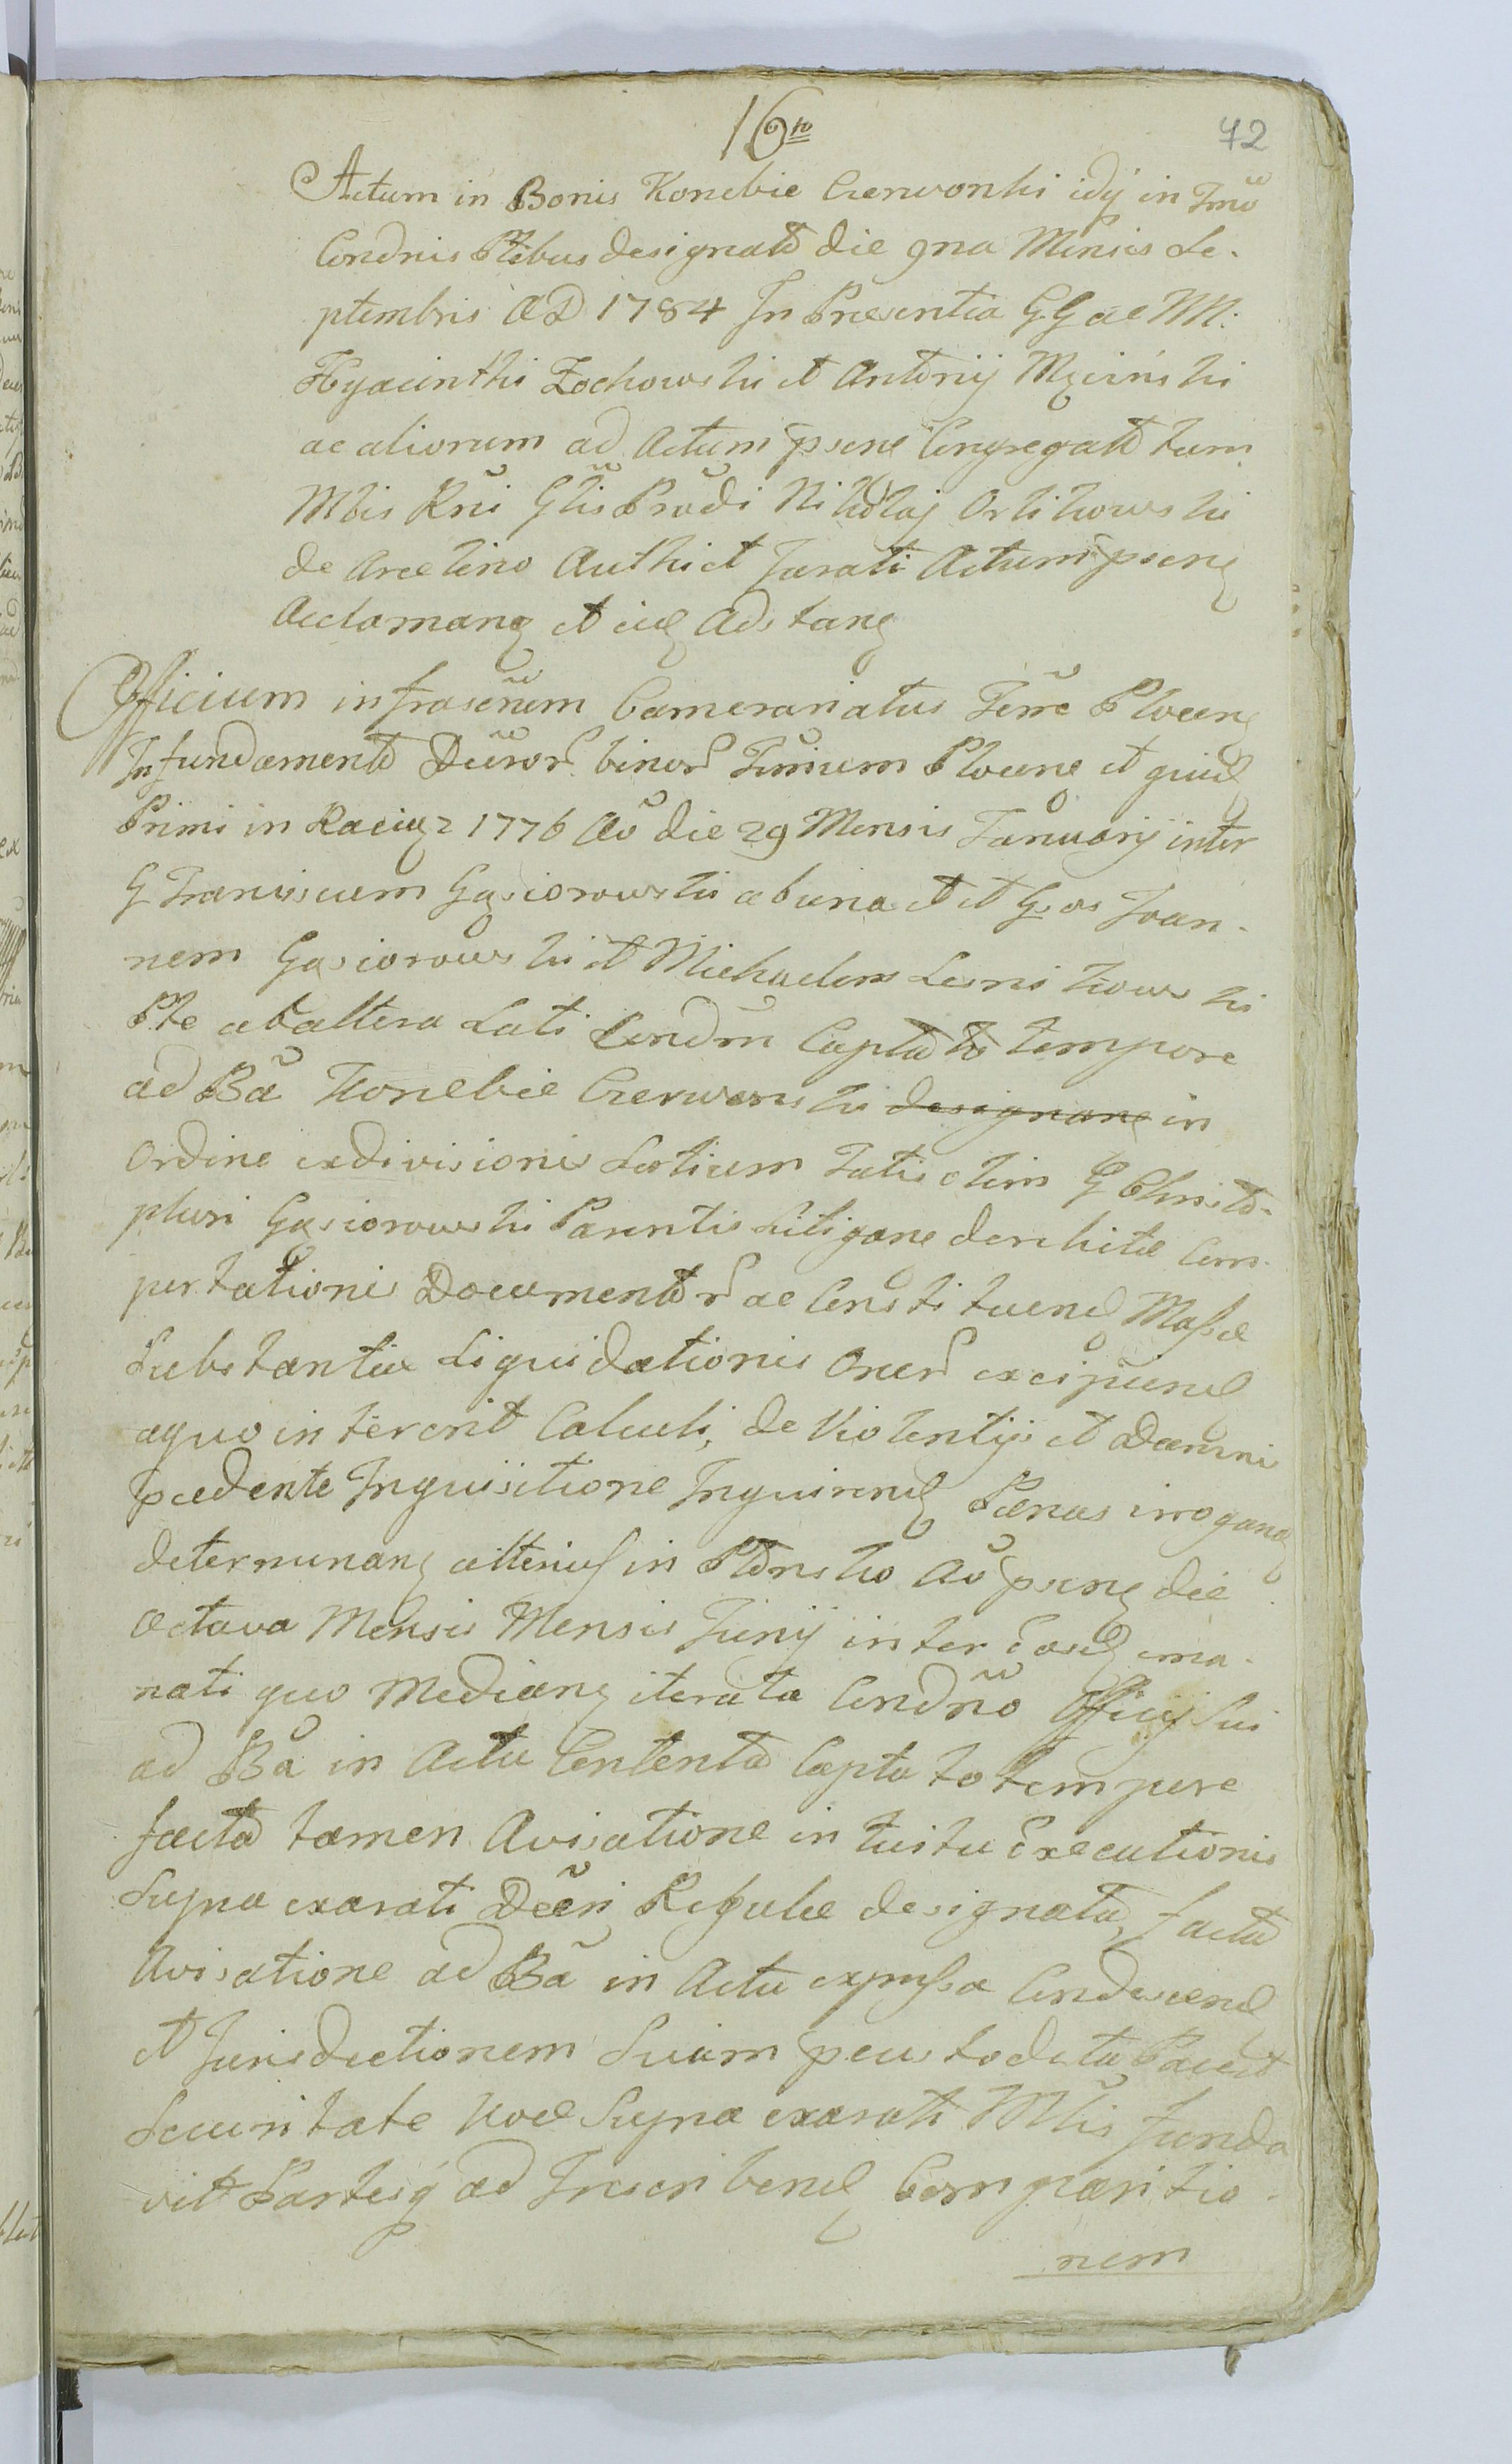 16to
42
Actum in Bonis Konebie Czerwonki idq in Tmo
Condnis Ptibus designato die 9na Mensis Se-
ptembris AD 1784 In Presentia GG ac MM:
Hyacinthi Zochowski et Antonij Męcinski
ac aliorum ad Actum psene Congregato tum
Mtis Rni Glis Provdi Nikołaj Orlikowski
de Arcelino Authi et Jurati Actum pseng
Acclamang et eidę Adstang
Officium infrascrium Camerariatus Terre Ploceng
In fundamento Decror binor Tririum Ploceng et quidę
Primi in Raciąz 1776 Ao die 29 Mensis Januarij inter
G Franciscum Gąsiorowski ab una et et Gsos Joan-
nem Gąsiorowski et Michaelem Lesnikowski
Pte ab altera Lati Condnm Captato tempore
ad Ba Konebie Czerwonki designang in
Ordine exdivisionis Sortium Fatis olim G Christo-
phori Gąsiorowski Parentis Litigane derelicte Com-
portationis Documentor ac Constituend Massę
Substantiæ Liquidationis Oner excipiend
aquo intererit Calculi, de Violentijs et Damnis
pcedente Inquisitione Inquirend Pænas irrogand
determinang ulterius in Płonsko Ao pseng die
Octava Mensis Mensis Junij inter Eosdę ema-
nati quo Mediang iterata Condno Officij Sui
ad Ba in Actu Contenta Captato tempore
facta tamen Avisatione intuitu Executionis
Supra exarati Decri Regulæ designata, facta
Avisatione ad Ba in Actu expressa Condescend
et Jurisdictionem Suam pcustodita Pace et
Securitate Voce Supra exarati Mtlis funda
vit Partesq ad Inscribend Comparitio-
nem